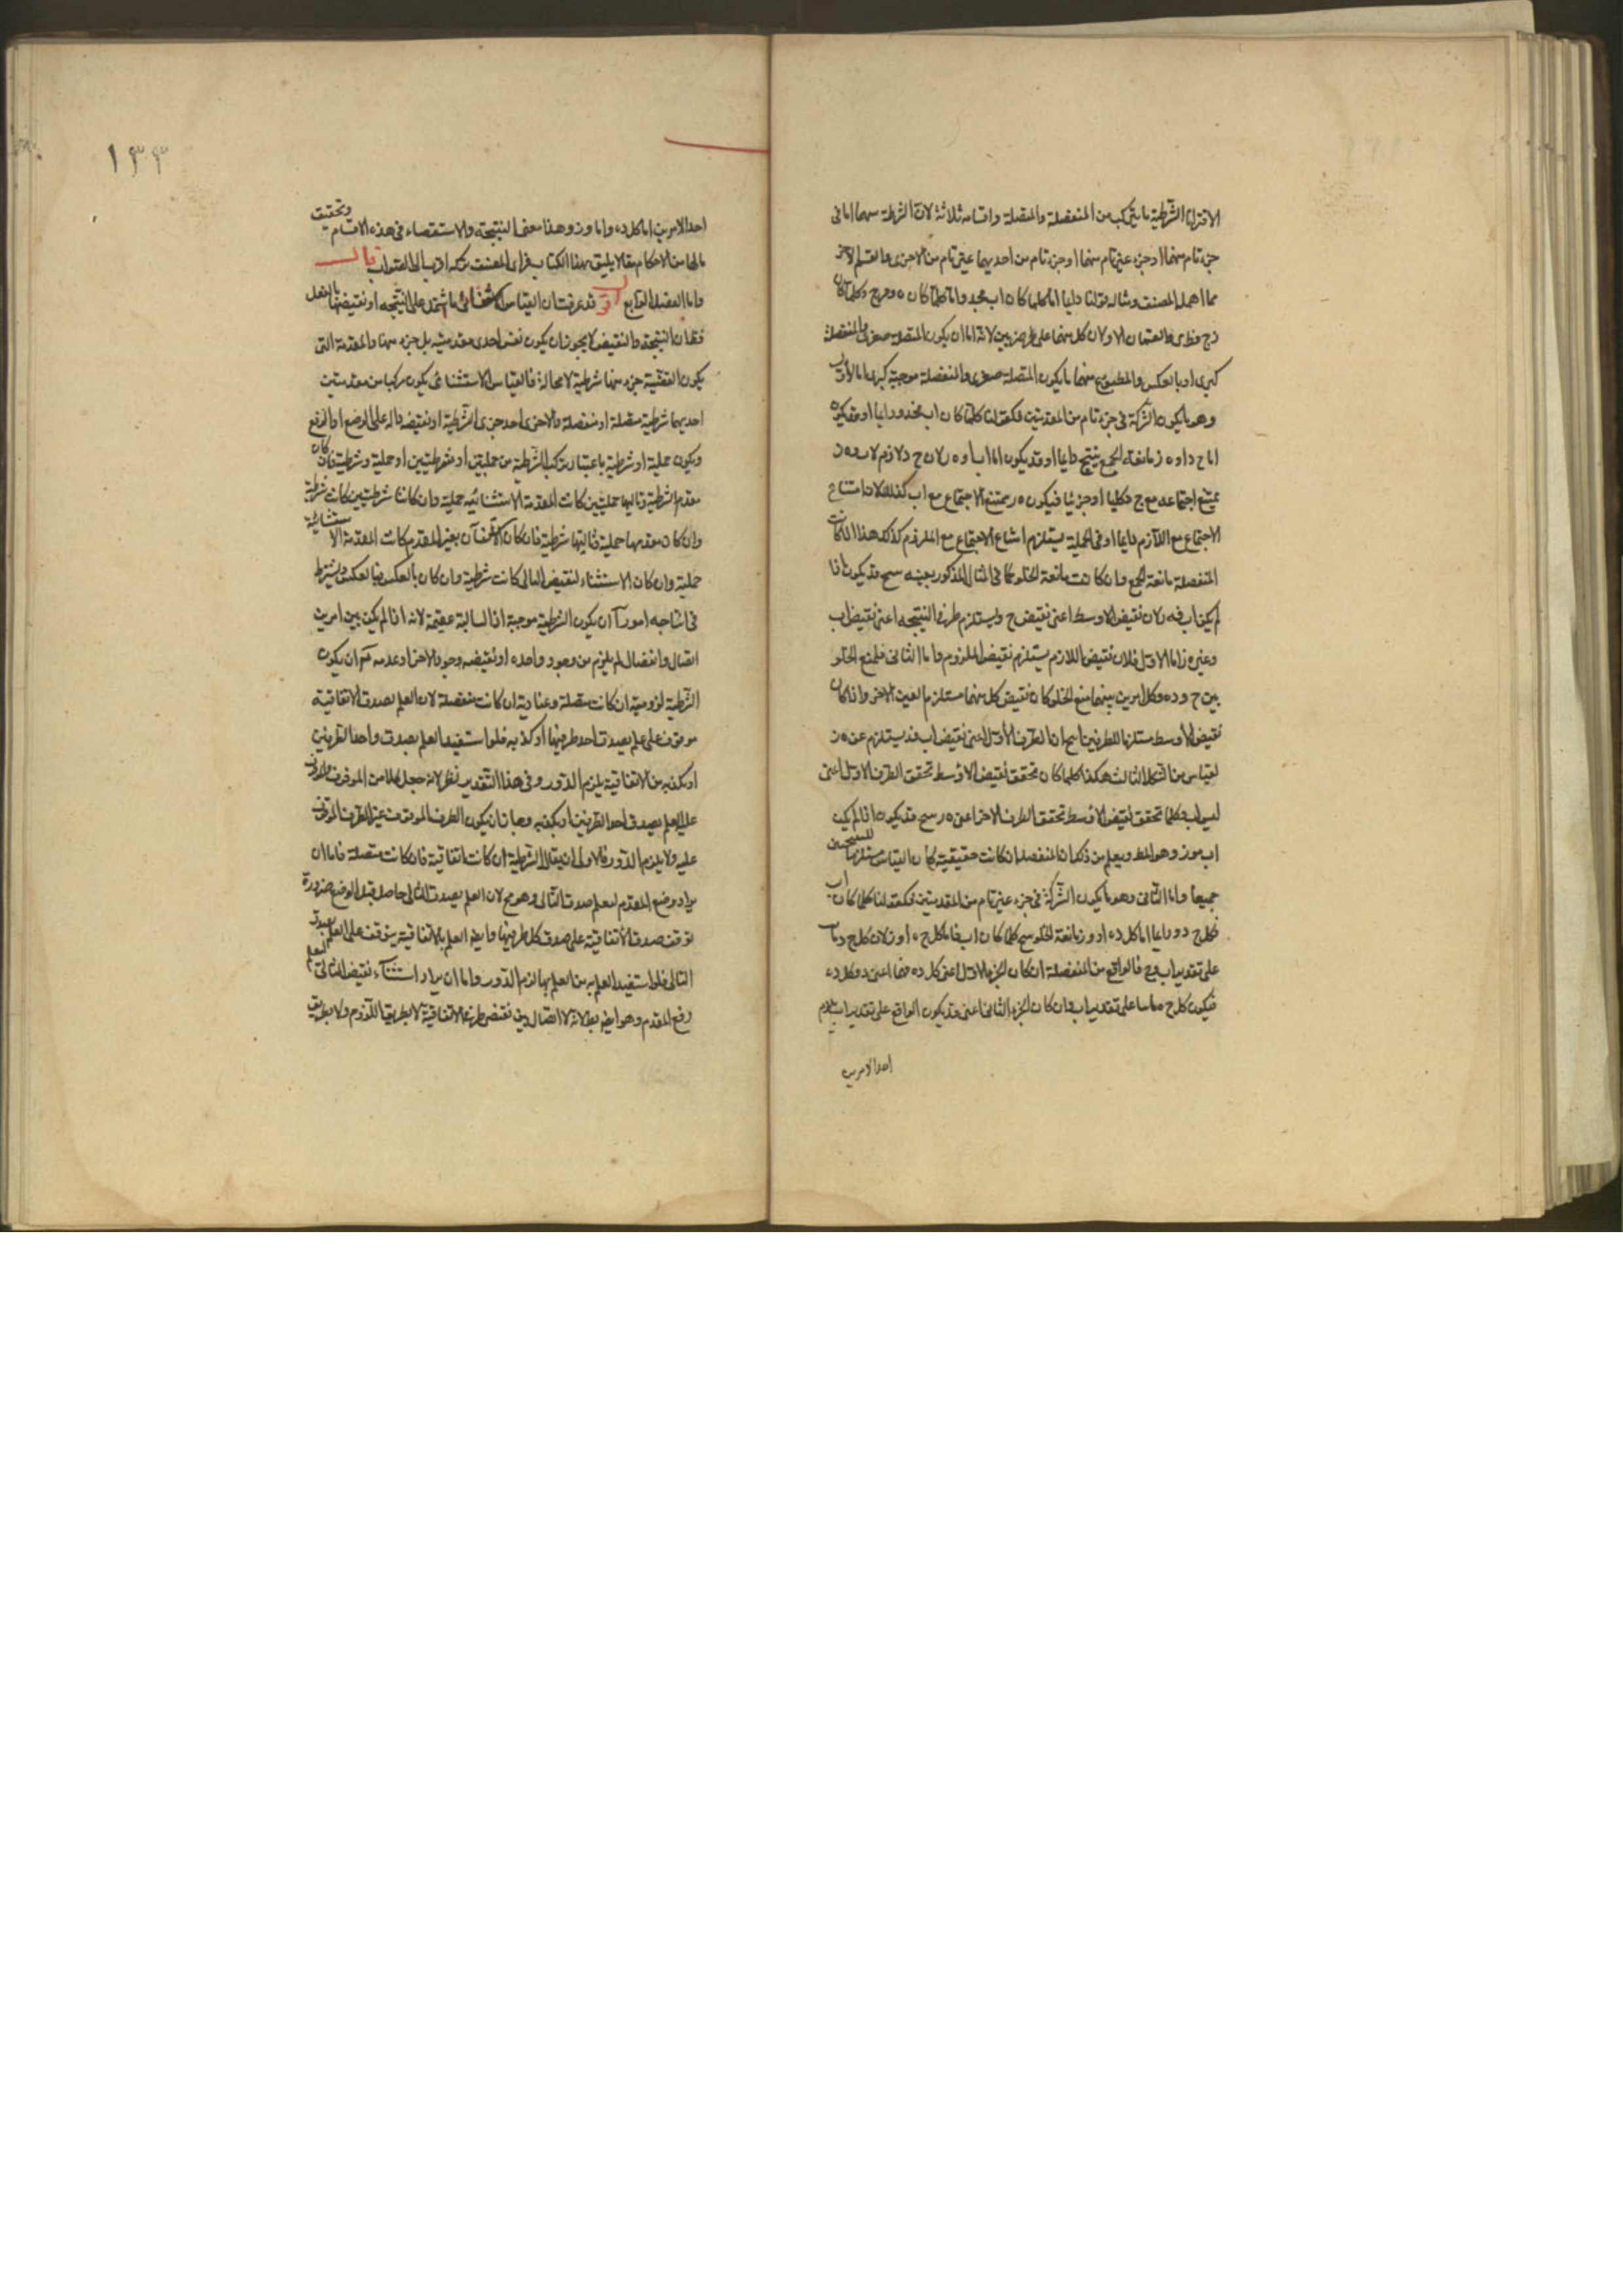 الاقترانى الشرطية ما يتركب من المنفصلة والمتصلة واقسامه ثلاثة لان الشركة بينهما اما فى
جزء تام منهما او جزء غير تام منهما او جزء تام من احديهما غير تام من الاخرى هذا القسم الاخر
مما اهمله المصنف ومثاله قولنا دايما اما كلما كان اب فجد واما كلما كان ه فجد وكلما كان
والقسمان الاولان كل منهما على ضربين لانه اما ان يكون المتصلة صغرى والمنفصلة
كبرى او بالعكس والمطبوع منهما ما يكون المتصلة صغرى والمنفصلة موجبة كبرى اما الاول
وهو ما يكون الشركة فى جزء تام من المقدمتين فكقولنا كلما كان اب فجد ودايما او قد يكون
اما ج د او ه ز مانعة الجمع ينتج دايما او قد يكون اما اب او ه ز لان ج د لازم لاب و ه ز
يمتنع اجتماعه مع ج د كليا او جزئيا فيكون ه ز ممتنع الاجتماع مع اب كذلك لان امتناع
الاجتماع مع اللازم دايما او فى الجملة يستلزم امتناع الاجتماع مع الملزوم كذلك هذا اذا كانت
المنفصلة مانعة الجمع وان كانت مانعة الخلو كما فى المثال المذكور بعينه ينتج قد يكون اذا
لم يكن اب فه ز لان نقيض الاوسط اعنى نقيض ج د يستلزم طرفى النتيجه اعنى نقيض اب
وعين ه ز اما الاول فلان نقيض اللازم يستلزم نقيض الملزوم واما الثانى فلمنع الخلو
بين ج د و ه ز وكل امرين بينهما منع الخلو كان نقيض كل منهما مستلزما لعين الاخر واذا كان
نقيض الاوسط مستلزما للطرفين انتج ان الطرف الاول اعنى نقيض اب قد يستلزم عين ه ز
لقياس من الشكل الثالث هكذا كلما كان تحقق نقيض الاوسط تحقق الطرف الاول اعنى
ليس اب وكلما تحقق نقيض الاوسط تحقق الطرف الاخر اعنى ه ز ينتج قد يكون اذا لم يكن
اب فه ز وهو المط ويعلم من ذلك ان المنفصلة ان كانت حقيقية كان القياس مستلزما للنتيجتين
جميعا واما الثانى وهو ما يكون الشركة فى جزء غير تام من المقدمتين فكقولنا كلما كان اب
فكل ج د ودايما اما كل د ه او و ز مانعة الخلو ينتج كلما كان اب فاما كل ج ه او و ز لان كل ج د
على تقدير اب و ج فالواقع من المنفصلة ان كان الجزء الاول اعنى كل د ه
فيكون كل ج ه على تقدير اب وان كان الجزء الثانى اعنى و ز يكون الواقع على تقدير اب يلزم
احد الامرين
١٣٣
احد الامرين اما كل ج ه واما و ز وهذا معنى النتيجة والاستقصاء فى هذه الاقسام وتحقيق
مالها من الاحكام مما لا يليق بهذا الكتاب فراى المصنف تركه اقرب الى الصواب قال
واما الفصل الرابع اقول قد عرفت ان القياس الاستثنائى ما اشتمل على النتيجه او نقيضها بالفعل
فظ ان النتيجة والنقيض لا يجوز ان يكون نفس احدى مقدمتيه بل جزء منها والمقدمة التى
يكون القضية جزء منها شرطية لا محالة فالقياس الاستثنائى يكون مركبا من مقدمتين
احديهما شرطية متصلة او منفصلة والاخرى احد جزئى الشرطية او نقيضه دالة على الوضع او الرفع
ويكون حملية او شرطية باعتبار تركب الشرطية من حمليتين او شرطيتين او حملية وشرطية فان كان
مقدم الشرطية وتاليها حمليتين كانت المقدمة الاستثنائيه حملية وان كانا شرطيتين كانت شرطية
وان كان مقدمها حملية وتاليها شرطية فان كان الاستثناء بعين المقدم كانت المقدمة الاستثنائية
حملية وان كان الاستثناء لنقيض التالى كانت شرطية وان كان بالعكس فبالعكس ويشترط
فى انتاجه امور آ ان يكون الشرطية موجبة اذ السالبة عقيمة لانه اذا لم يكن بين امرين
اتصال وانفصال لم يلزم من وجود واحده او نقيضه وجود الاخر او عدمه ب ان يكون
الشرطية لزومية ان كانت متصلة وعنادية ان كانت منفصلة لان العلم بصدق الاتفاقية
موقوف على علم بصدق احد طرفيها او كذبه فلو استفيد العلم بصدق واحد الطرفين
او بكذبه من الاتفاقية يلزم الدور وفى هذا التقدير نظر لانه جعل كلا من الموقوف والموقوف
عليه العلم بصدق احد الطرفين او بكذبه وجاز ان يكون الطرف الموقوف غير الطرف الموقوف
عليه ولا يلزم الدور فالاولى ان يقال الشرطية ان كانت اتفاقية فان كانت متصلة فاما ان
يراد وضع المقدم ليعلم صدق التالى وهو مح لان العلم بصدق التالى حاصل قبل الوضع ضرورة
توقف صدق الاتفاقية على صدق كل طرفيها وايضا العلم بالاتفاقية يتوقف على العلم بصدق
التالى فلو استفيد العلم به من العلم بها لزم الدور واما ان يراد استثناء نقيض التالى ليعلم
رفع المقدم وهو ايضا بطلانه لا اتصال بين نقيضى طرفى الاتفاقية لا بطريق اللزوم ولا بطريق